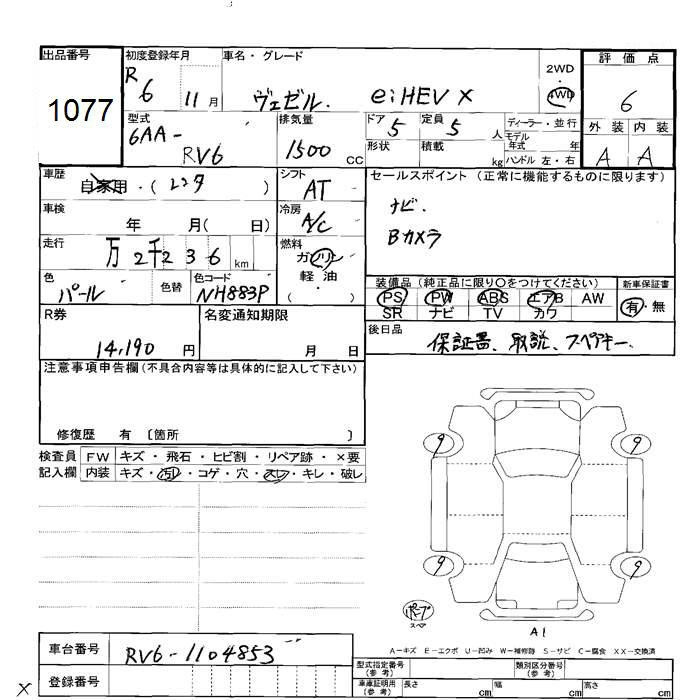 出品番号 初度登録年月 車名・グレード 評価点
1077 R 6 11月 ヴェゼル e:HEV X 2WD・4WD 6
型式 排気量 ドア 5 定員 5人 ディーラー・並行 外装 内装
6AA-RV6 1500cc 形状 積載 kg モデル年式 年 ハンドル 左・右 A A
車歴 自家用・( ) シフト AT セールスポイント (正常に機能するものに限ります)
車検 年 月( 日) 冷房 A/C ナビ.
Bカメラ
走行 万 2千2 3 6 km 燃料 ガソリン 軽・油 ( ・ )
色 パール 色替 色コード NH883P
装備品(純正品に限り〇をつけてください) 新車保証書
PS PW ABS エアB AW 有・無
SR ナビ TV カワ
R券 14,190円 名変通知期限 月 日
後日品 保証書、取説、スペアキー
注意事項申告欄(不具合内容等は具体的に記入して下さい)
修復歴 有 〔箇所 〕
検査員 FW キズ・飛石・ヒビ割・リペア跡・×要
記入欄 内装 キズ・汚れ・コゲ・穴・スレ・キレ・破レ
9 9
9 9
スペア
A1
A-キズ E-エクボ U-凹み W-補修跡 S-サビ C-腐食 XX-交換済
車台番号 RV6-1104853
登録番号
型式指定番号(参考) 類別区分番号(参考)
車庫証明用(参考) 長さ cm 幅 cm 高さ cm
X